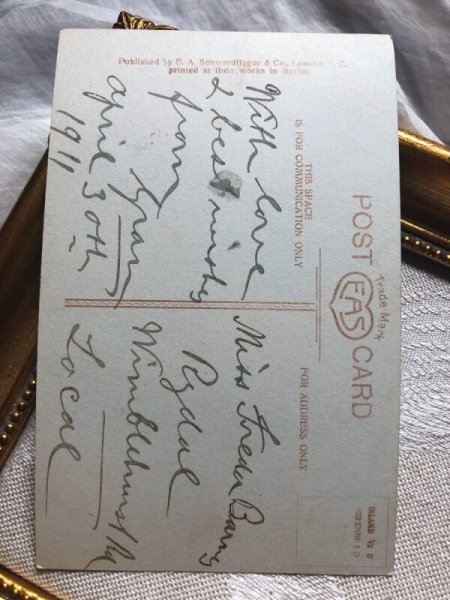 POST CARD
Trade Mark
EAS
THIS SPACE
IS FOR COMMUNICATION ONLY
FOR ADDRESS ONLY
INLAND ½ D
FOREIGN 1 D
With love
& best wishes
from
Gran
April 30th
1911
Miss Freda
Rydal
Wimblehurst Rd
Local
Published by E. A. Schwerdtfeger & Co., London E. C.
printed at their works in Berlin.